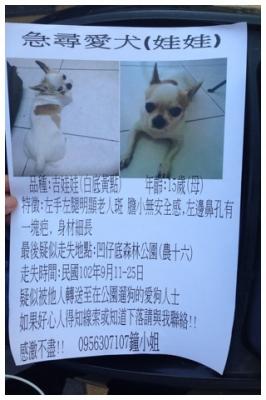 急尋愛犬(娃娃)
品種:吉娃娃(白底黃點) 年齡:15歲(母)
特徵:左手左腿明顯老人斑 膽小無安全感,左邊鼻孔有
一塊疤，身材細長
最後疑似走失地點:凹仔底森林公園(農十六)
走失時間:民國102年9月11-25日
疑似被他人轉送至在公園遛狗的愛狗人士
如果好心人得知線索或知道下落請與我聯絡!!
感激不盡!! 0956307107鐘小姐